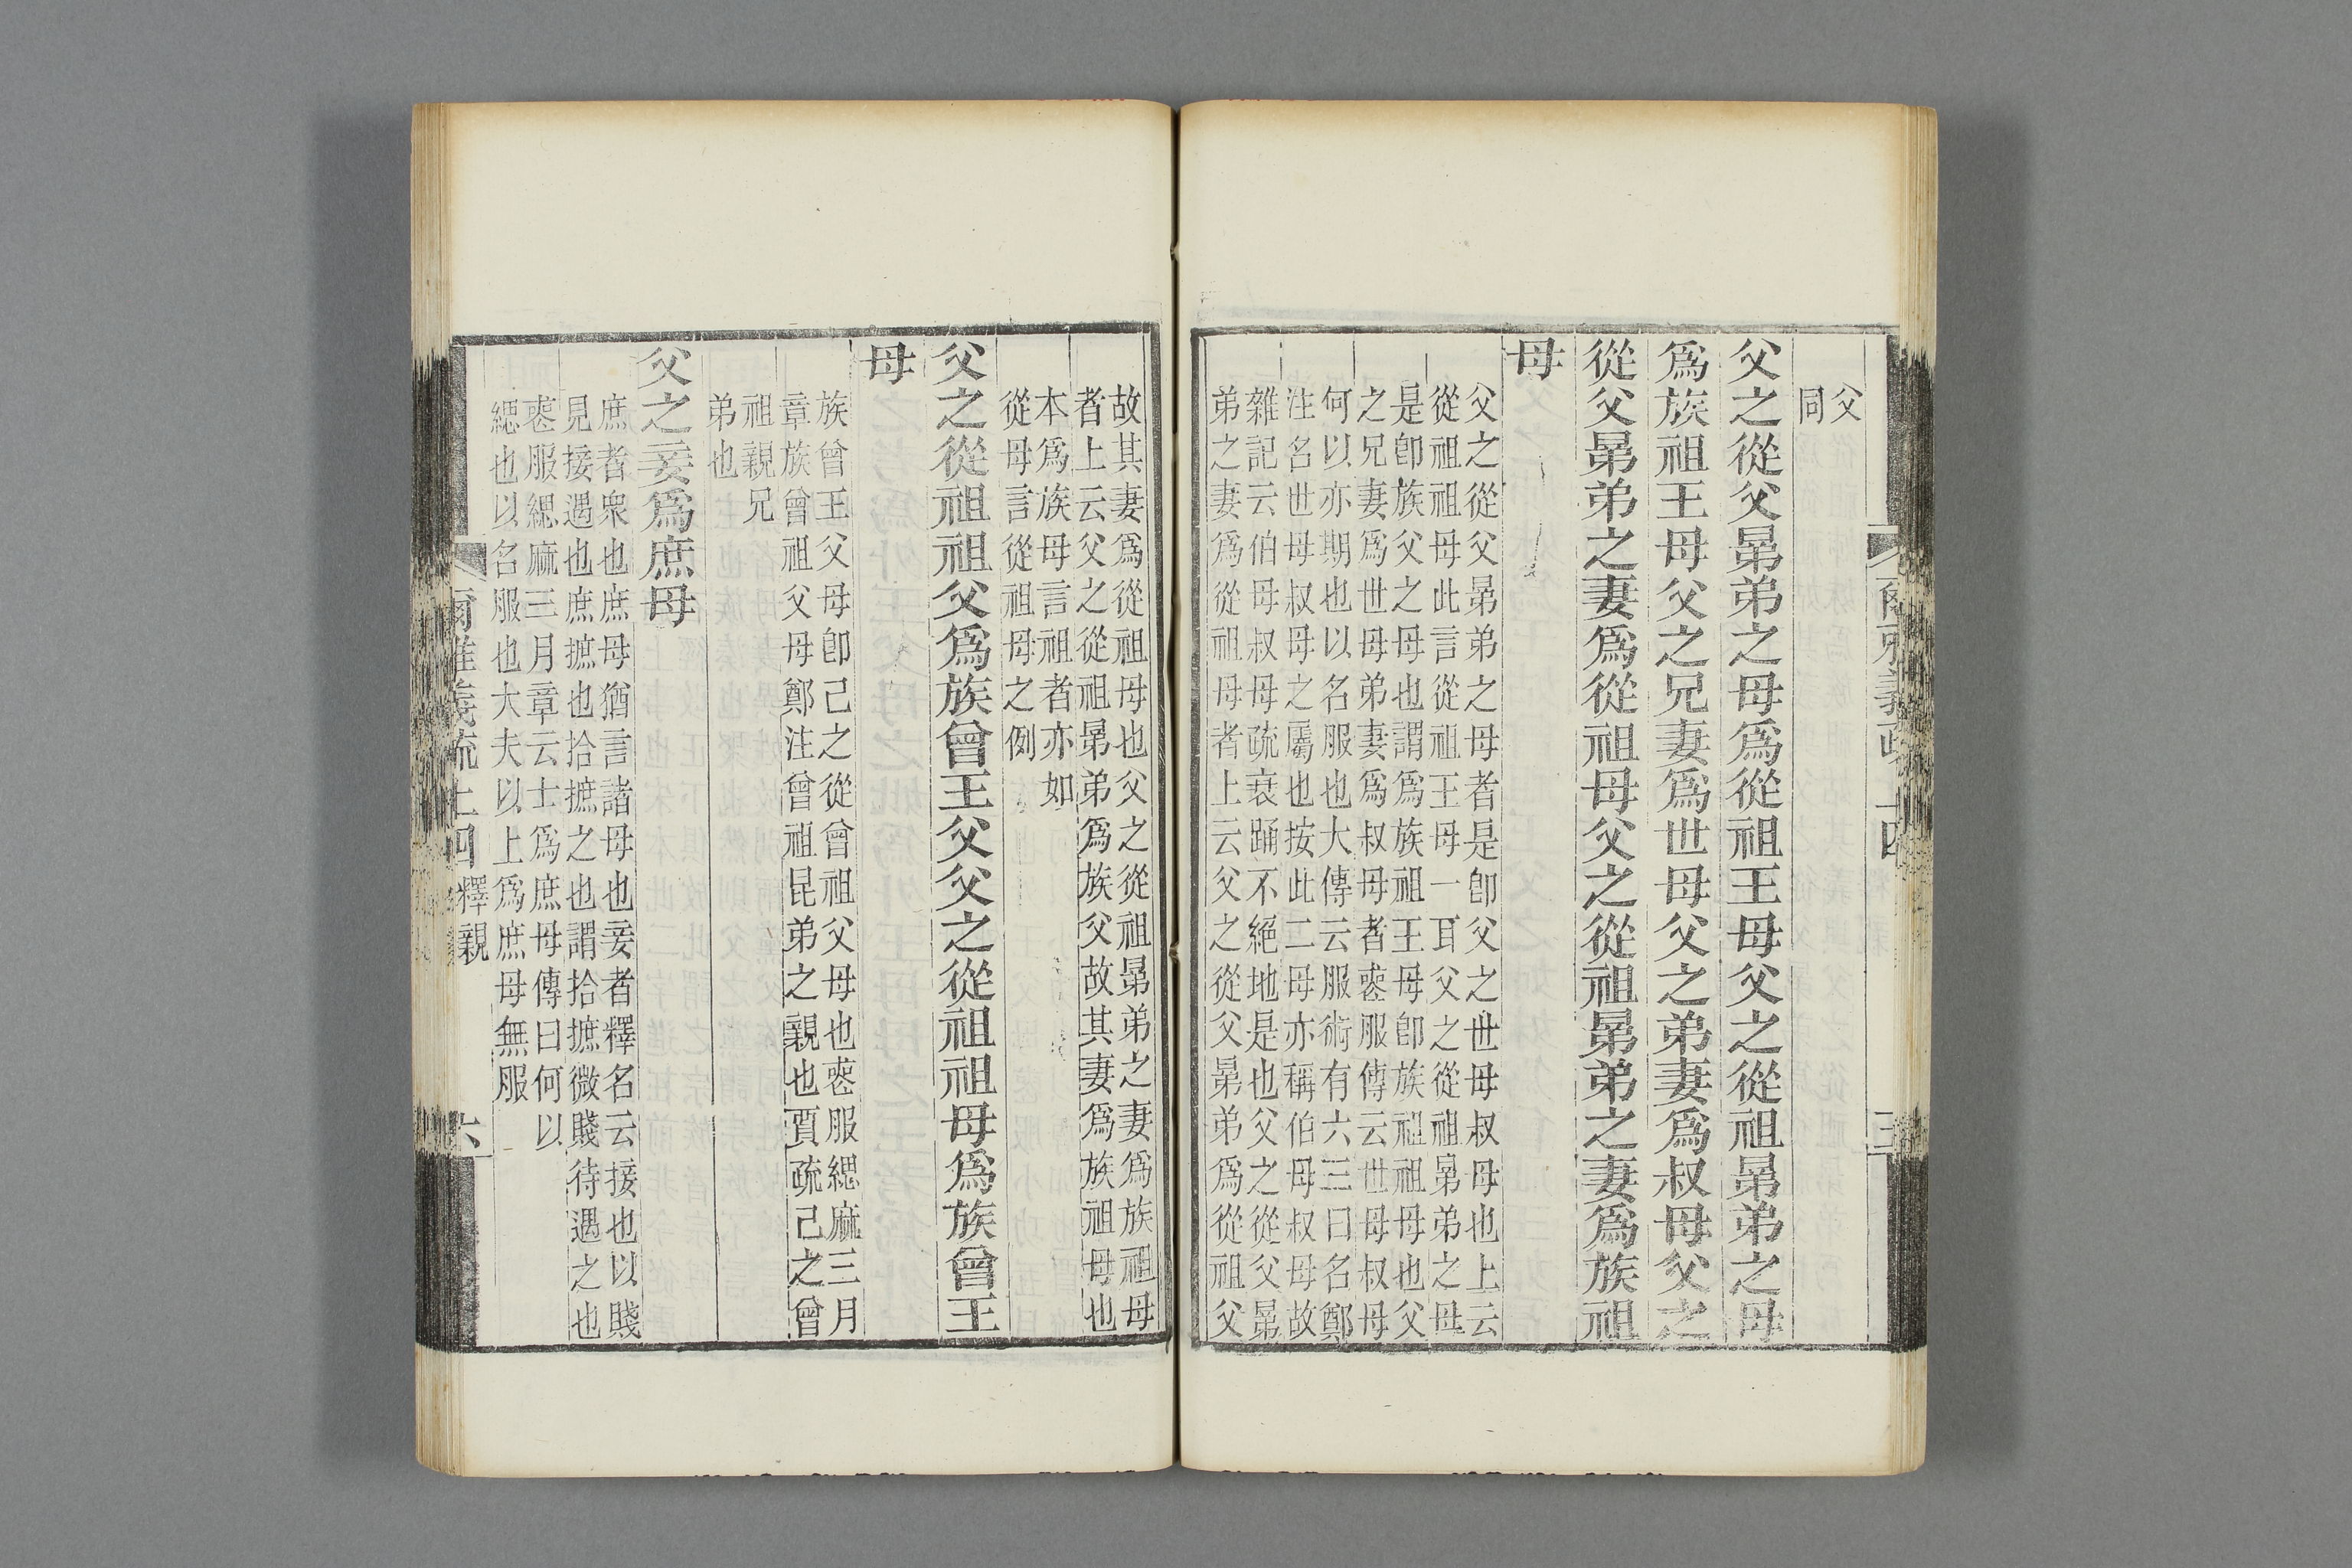 父
同
父之從父晜弟之母爲從祖王母父之從祖晜弟之母
爲族祖王母父之兄妻爲世母父之弟妻爲叔母父之
從父晜弟之妻爲從祖母父之從祖晜弟之妻爲族祖
母
父之從父晜弟之母者是卽父之世母叔母也上云
從祖祖母此言從祖王母一耳父之從祖晜弟之母
是卽族父之母也謂爲族祖王母卽族祖祖母也父
之兄妻爲世母弟妻爲叔母者喪服傳云世母叔母
何以亦期也以名服也大傳云服術有六三曰名鄭
注名世母叔母之屬也按此二母亦稱伯母叔母故
雜記云伯母叔母疏衰踊不絕地是也父之從父晜
弟之妻爲從祖母者上云父之從父晜弟爲從祖父
故其妻爲從祖母也父之從祖晜弟之妻爲族祖母
者上云父之從祖晜弟爲族父故其妻爲族祖母也
本爲族母言祖者亦如
從母言從祖母之例
父之從祖祖父爲族曾王父父之從祖祖母爲族曾王
母
族曾王父母卽己之從曾祖父母也喪服緦麻三月
章族曾祖父母鄭注曾祖昆弟之親也賈疏己之曾
祖親兄
弟也
父之妾爲庶母
庶者衆也庶母猶言諸母也妾者釋名云接也以賤
見接遇也庶摭也拾摭之也謂拾摭微賤待遇之也
喪服緦麻三月章云士爲庶母傳曰何以
緦也以名服也大夫以上爲庶母無服
爾雅義疏上四 釋親 六